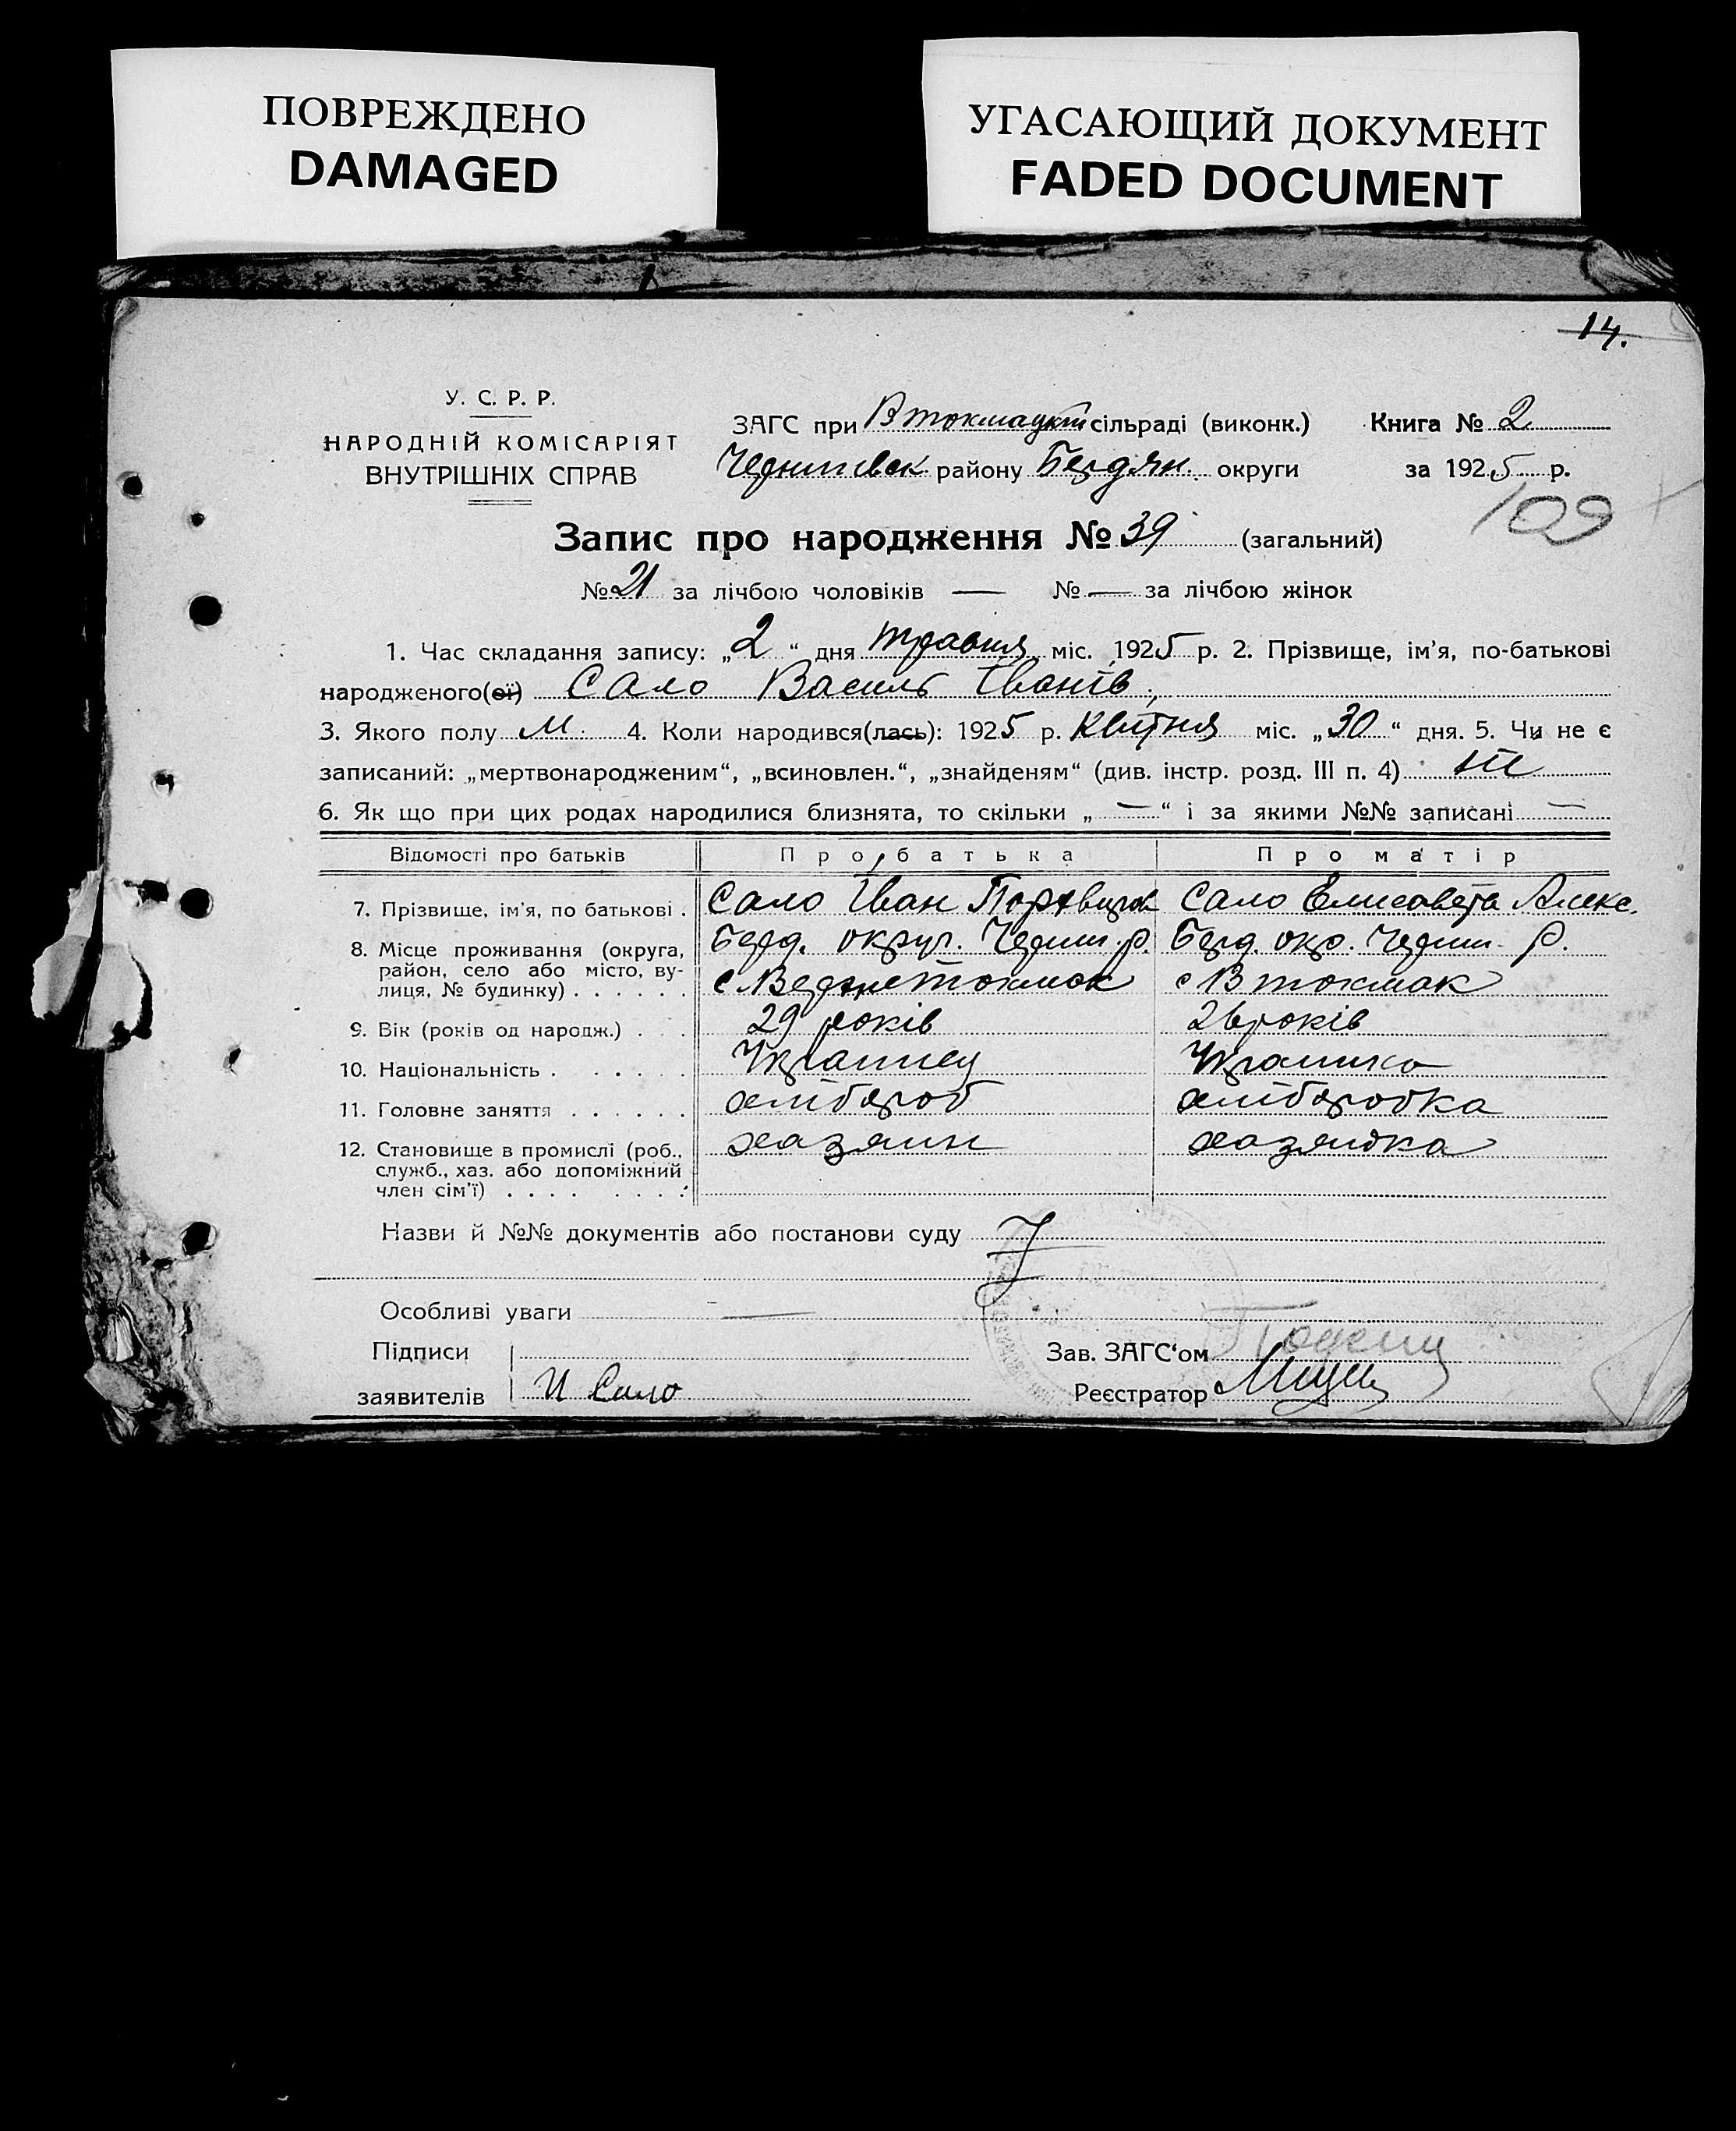 ПОВРЕЖДЕНО
DAMAGED
УГАСАЮЩИЙ ДОКУМЕНТ
FADED DOCUMENT
14.
У. С. Р. Р.
НАРОДНІЙ КОМІСАРІЯТ
ВНУТРІШНІХ СПРАВ
ЗАГС при В токмацкій сільраді (виконк.)
Чернигівськ району Бердян. округи
Книга № 2
за 1925 р.
109
Запис про народження № 39 (загальний)
№ 21 за лічбою чоловіків — № — за лічбою жінок
1. Час складання запису: „2“ дня травня міс. 1925 р. 2. Прізвище, ім’я, по-батькові
народженого(ої) Сало Василь Іванів
3. Якого полу м. 4. Коли народився(лась): 1925 р. квітня міс. „30“ дня. 5. Чи не є
записаний: „мертвонародженим“, „всиновлен.“, „знайденям“ (див. інстр. розд. III п. 4) ні
6. Як що при цих родах народилися близнята, то скільки „—“ і за якими №№ записані —
Відомості про батьків Про батька Про матір
7. Прізвище, ім’я, по батькові . Сало Іван Сало Елисавета Алекс.
8. Місце проживання (округа, Берд. округ. Черниг. р. Берд. окр. Черниг. р.
район, село або місто, ву- с Верхнє Токмак с В токмак
лиця, № будинку) . . . . . .
9. Вік (років од народж.) . . . 29 років 26 років
10. Національність . . . . . . Українец Українка
11. Головне заняття . . . . . . хлібороб хліборобка
12. Становище в промислі (роб., хазяин хазяйка
служб., хаз. або допоміжний
член сім’ї) . . . . . . . .
Назви й №№ документів або постанови суду
Особливі уваги —
Підписи
заявителів И Сало
Зав. ЗАГС‘ом
Реєстратор